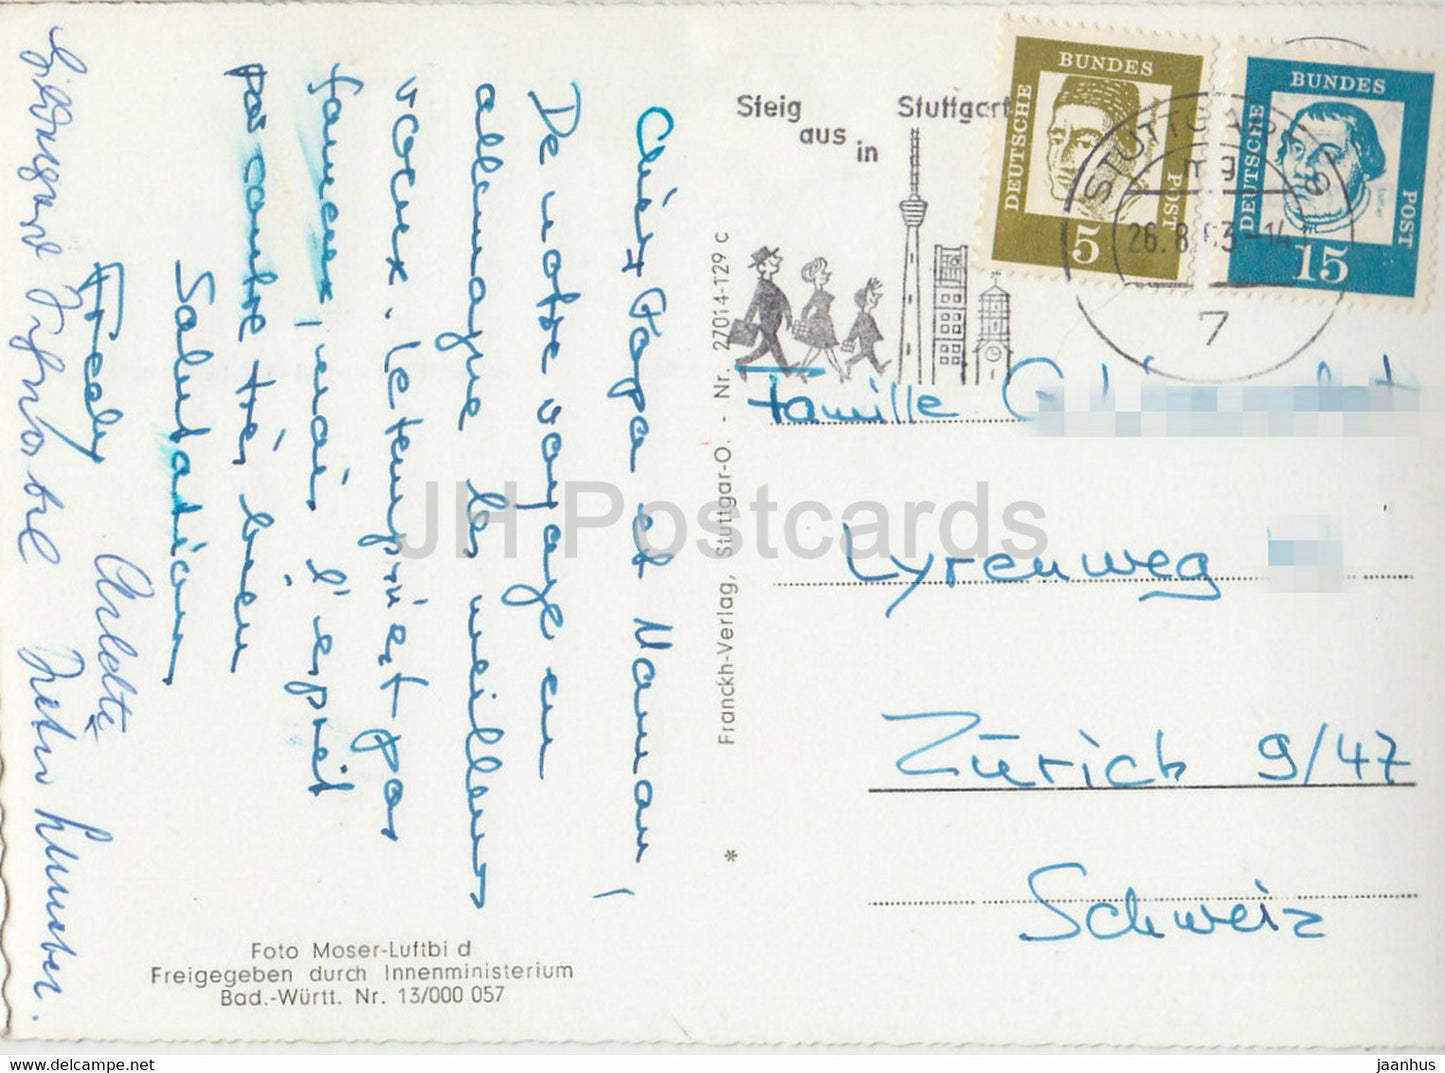 Chèr Papa et Maman,
De notre voyage en
allemagne les meilleurs
voeux. Le temps n'est pas
fameux, mais l'esprit
par contre très bien
Salutation
Fredy
Arlette
Steig
aus
in
Stuttgart
DEUTSCHE BUNDES POST
5
DEUTSCHE BUNDES POST
15
STUTTGART 9
mg
26.8.63.-14
7
Famille
Lyrenweg
Zürich 9/47
Schweiz
Franckh-Verlag, Stuttgar-O. - Nr. 27014-1'29 c
*
Foto Moser-Luftbi d
Freigegeben durch Innenministerium
Bad.-Württ. Nr. 13/000 057
JH Postcards
jaanhus
https://www.delcampe.net